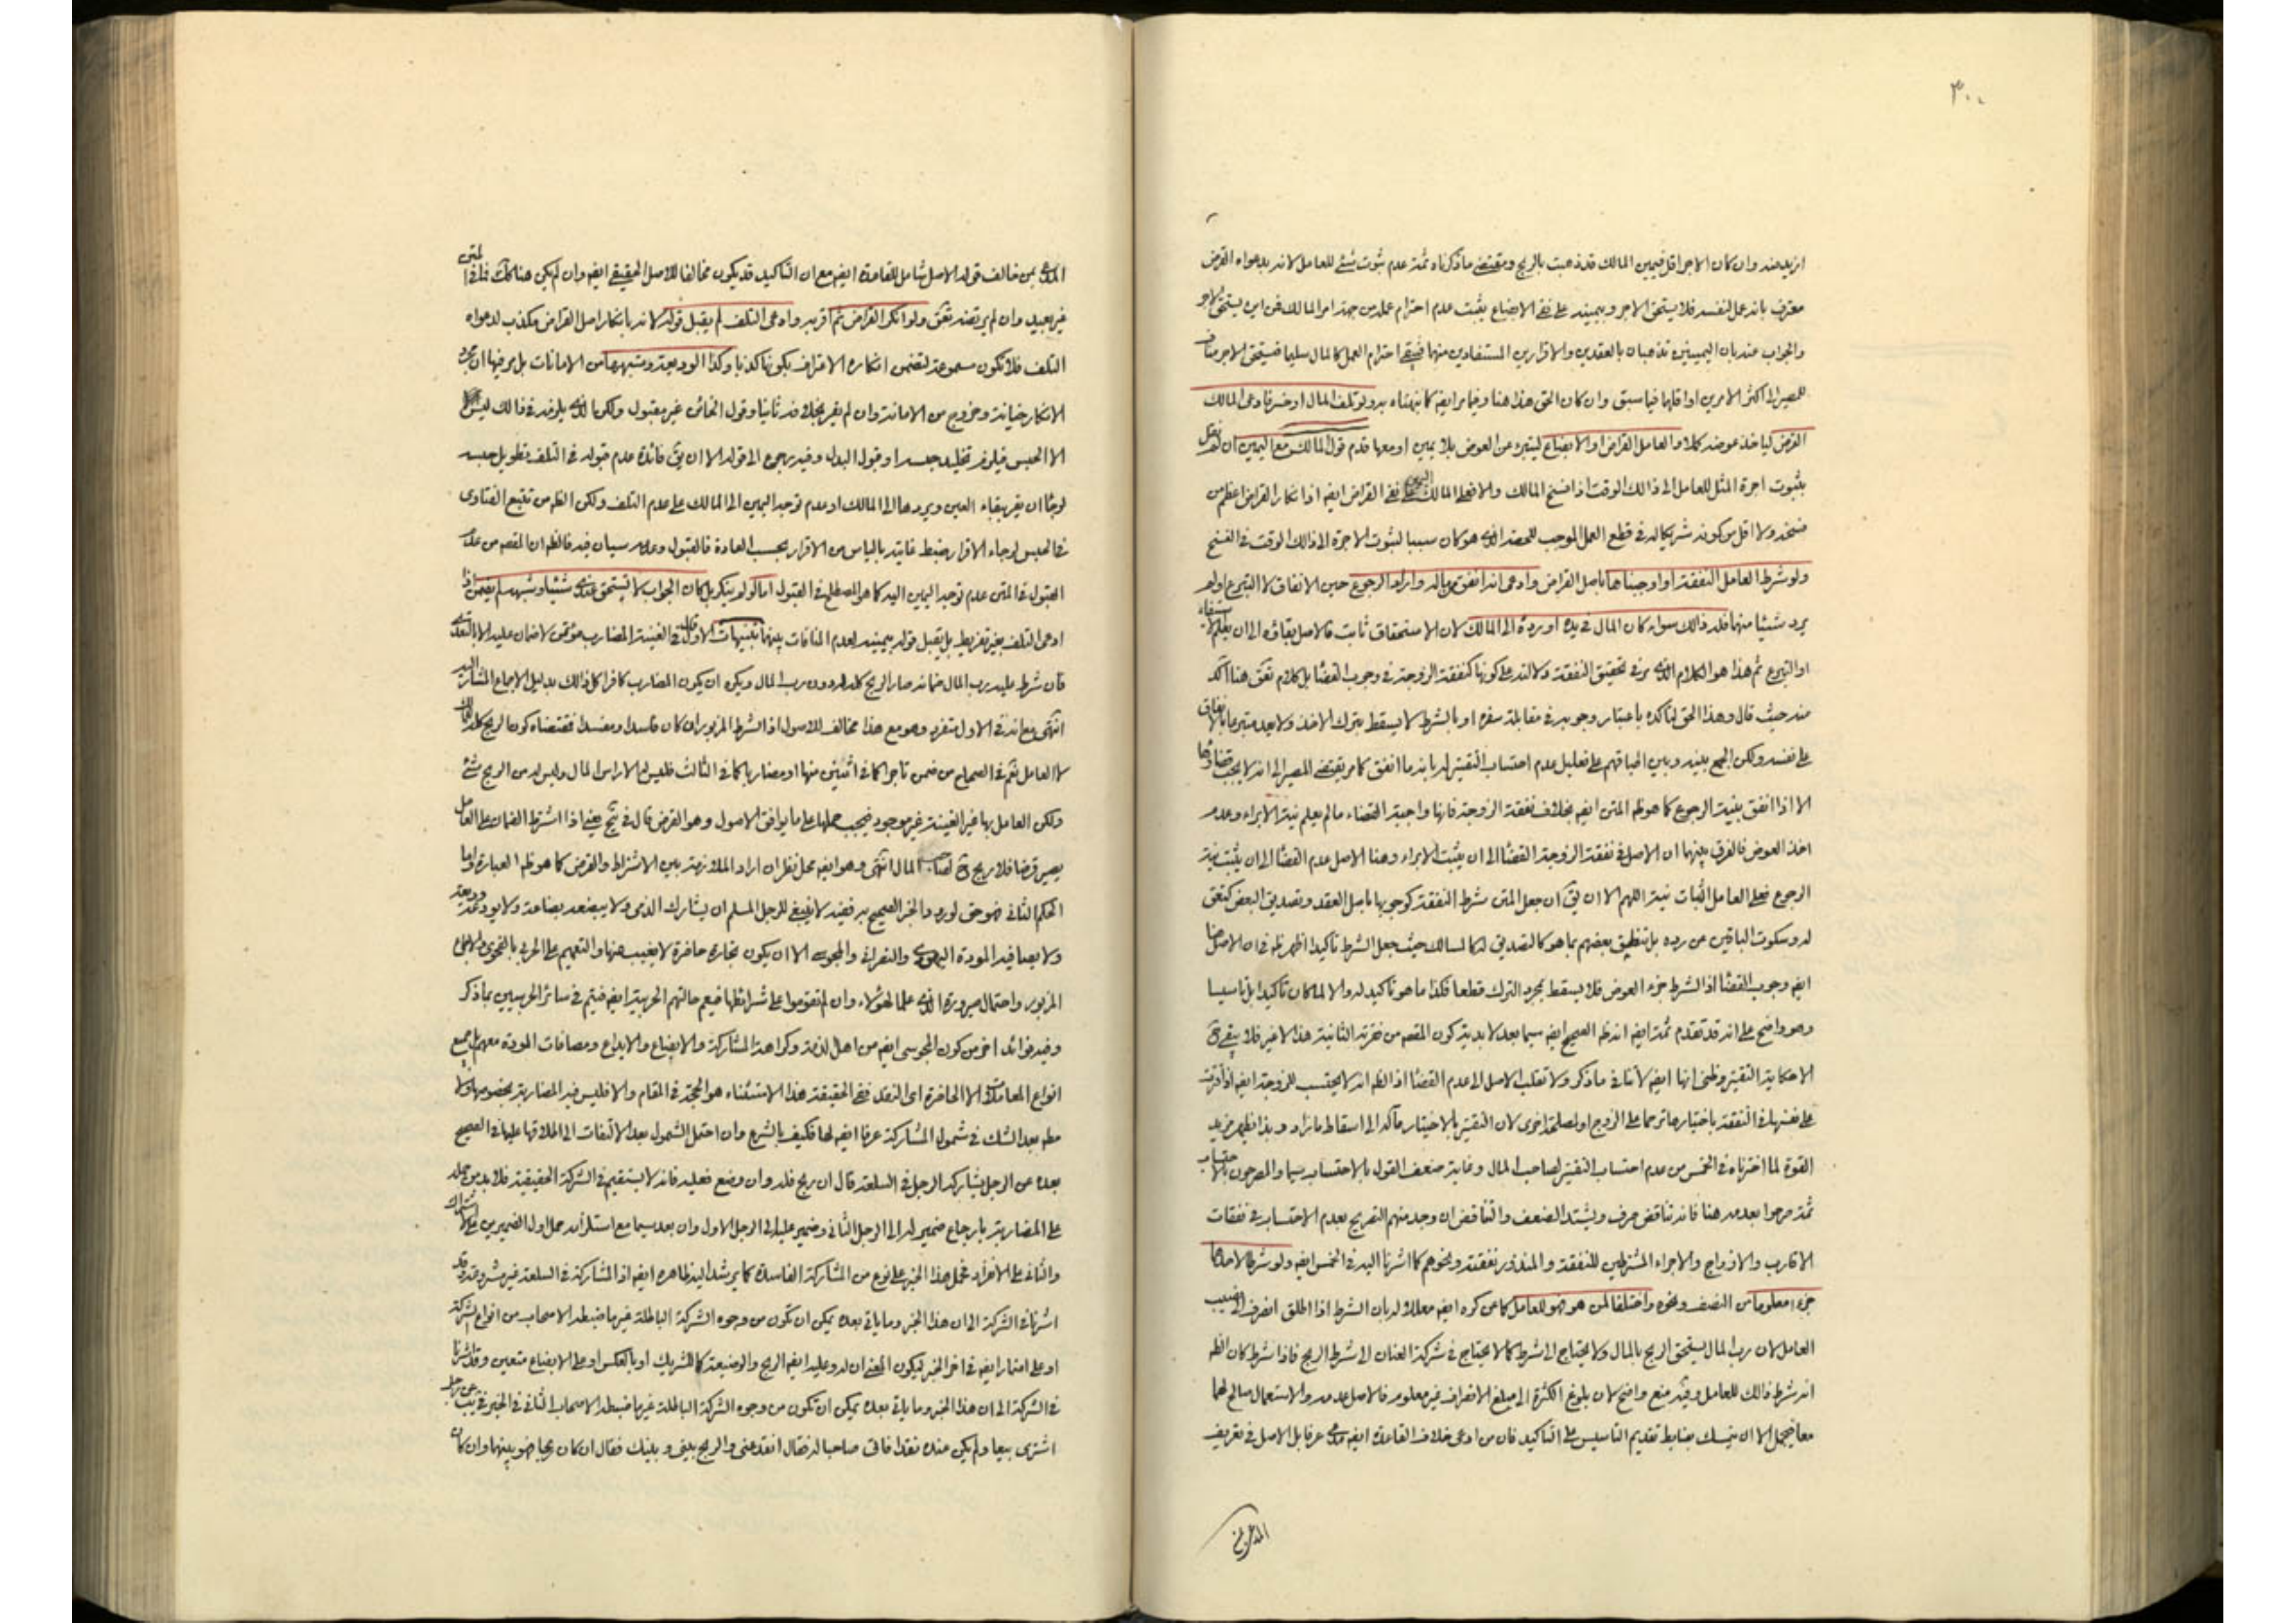 ٣٠٠
ازيد منه وان كان الاجر اقل فيمين المالك قد ذهبت بالربح ومقتضى ما ذكرناه ثمة عدم ثبوت شئ للعامل لانه بدعواه القرض
معترف بانه عمل لنفسه فلا يستحق الاجر وبيمينه على نفى الابضاع يثبت عدم احترام عمله من جهة امر المالك فمن اين يستحق الاجر
والجواب عنه بان اليمينين تذهبان بالعقدين والاقرارين المستفادين منهما فيبقى احترام العمل كالمال سليما فيستحق الاجر
للمصير الى اكثر الامرين او اقلهما فيما سبق وان كان الحق هذا هنا وفيما مر ايضا كما نبهناه به ولو تلف المال او خسر فادعى المالك
القرض لياخذ عوضه كلا والعامل القراض او الابضاع ليتبرء عن العوض بلا يمين او معها قدم قول المالك مع اليمين ان لم نقل
بثبوت اجرة المثل للعامل الى ذالك الوقت اذا فسخ المالك والا فعلى المالك اليمين على نفى القراض ايضا اذ انكار القراض اعظم من
فسخه ولا اقل من كونه شريكا له فى قطع العمل الموجب للحصة الذى هو كان سببا لثبوت الاجرة الى ذالك الوقت فى الفسخ
ولو شرط العامل النفقة او اوجبناها باصل القراض وادعى انه انفق من ماله واراد الرجوع حين الانفاق لا التبرع ولم
يرد شيئا منهما فله ذالك سواء كان المال فى يده او رده الى المالك لان الاستحقاق ثابت فالاصل بقاؤه الى ان يعلم الاستيفاء
او التبرع ثم هذا هو الكلام الذى مر فى تحقيق النفقة ودلالته على كونها كنفقة الزوجة فى وجوب القضا بل كلام هنا آكد
منه حيث قال وهذا الحق لتاكده باعتبار وجوبه فى مقابلة سفره او بالشرط لا يسقط بترك الاخذ ولا يعد متبرعا بالانفاق
على نفسه ولكن الجمع بينه وبين اطباقهم على تعليل عدم احتساب التقتير له بانه ما انفق كما مر يقتضى المصير الى انه لا يجب قضاؤها
الا اذا انفق بنية الرجوع كما هو ظ المتن ايضا بخلاف نفقة الزوجة فانها واجبة القضاء ما لم يعلم نية الابراء وعدم
اخذ العوض فالفرق بينهما ان الاصل فى نفقة الزوجة القضا الى ان يثبت الابراء وهنا الاصل عدم القضا الى ان يثبت نية
الرجوع فعلى العامل اثبات نيته اللهم الا ان يق ان جعل المتن شرط النفقة كوجوبها باصل العقد وتصديق البعض
له وسكوت الباقين عن رده بل تنطيق بعضهم بما هو كالتصديق له كالمسالك حيث جعل الشرط تاكيدا اظهر ظ فى ان الاصل هنا
ايضا وجوب القضا اذ الشرط جزء العوض فلا يسقط بمجرد الترك قطعا فكذا ما هو تاكيد له والا لما كان تاكيدا بل تاسيسا
وهو واضح على انه قد تقدم ثمة ايضا انه ظ الصحيح ايضا سيما بعد لا بدية كون المقصود من نفقته الثانية هذا لا غير فلا يبقى ح
الا حكاية التقتير وظنى انها ايضا لا تنافى ما ذكر ولا تقلب الاصل الى عدم القضا اذ الظ انه لا يحتسب للزوجة ايضا اذا قترت
على نفسها فى النفقة باختيارها ترحما على الزوج او لمصلحة اخرى لان التقتير بالاختيار مآله الى اسقاط ما زاد وبذا يظهر مزيد
القوة لما اخترناه فى الخمس من عدم احتساب التقتير لصاحب المال وغاية ضعف القول بالاحتساب سيما والمصرحون بالاحتساب
ثمة صرحوا بعدمه هنا فانه تناقض صرف ويشتد الضعف والتناقض ان وجد منهم التصريح بعدم الاحتساب فى نفقات
الاقارب والازواج والاجراء المشترطين للنفقة والمنذور نفقته ونحوهم كما اشرنا اليه فى الخمس ايضا ولو شرطا لاحدهما
جزء معلوما من النصف ونحوه واختلفا لمن هو فهو للعامل كما عن كره ايضا معللا له بان الشرط اذا اطلق انصرف الى نصيب
العامل لان رب المال يستحق الربح بالمال ولا يحتاج الى شرط كما لا يحتاج فى شركة العنان الى شرط الربح فاذا شرط كان الظ
انه شرط ذالك للعامل وفيه منع واضح لان بلوغ الكثرة الى مبلغ الانصراف غير معلوم فالاصل عدمه والاستعمال صالح لهما
معا فيجمل الا ان يتمسك بضابط تقديم التاسيس على التاكيد فان من ادعى خلاف القاعدة ايضا مدع عرفا بل الاصل فى تعريف
المدعى بمن
المدعى بمن خالف قوله الاصل شامل للقاعدة ايضا مع ان التاكيد قد يكون مخالفا للاصل الحقيقى ايضا وان لم يكن هنا كك فما فى المتن
غير بعيد وان لم يرتضه ولو انكر القراض ثم اقر به وادعى التلف لم يقبل قوله لانه بانكار اصل القراض مكذب لدعواه
التلف فلا تكون مسموعة لتضمن انكاره الاعتراف بكونها كذبا وكذا الوديعة وشبهها من الامانات بل مر فيها ان مجرد
الانكار خيانة وخروج من الامانة وان لم يقر بخلافه ثانيا وقول الخائن غير مقبول ولكن الذى يلزمه فى ذالك ليس
الا الحبس فيلزم تخليد حبسه او قبول البدل وفيه رجوع الى قوله الا ان يق فائدة عدم قبوله فى التلف تطويل حبسه
لرجاء ان يقر ببقاء العين ويردها الى المالك او عدم توجه اليمين الى المالك على عدم التلف ولكن الظ من تتبع الفتاوى
فى الحبس لرجاء الاقرار ضبط غايته بالياس من الاقرار بحسب العادة فالقبول وعدمه سيان فيه فالظ ان المقصود من عدم
القبول فى المتن عدم توجه اليمين اليه كما هو المصطلح فى القبول اما لو لم ينكر بل كان الجواب لا يستحق عندى شيئا وشبهه لم يضمن اذا
ادعى التلف بغير تفريط بل يقبل قوله بيمينه لعدم المنافات بينهما تنبيهات الاول قال فى الغنية المضارب مؤتمن لا ضمان عليه الا بالتعدى
فان شرط عليه رب المال ضمانه صار الربح كله له دون رب المال ويكره ان يكون المضارب كافرا كل ذالك بدليل الاجماع المشار اليه
انتهى مع انه فى الاول متفرد وهو مع هذا مخالف للاصول اذ الشرط المزبور ان كان فاسدا ومفسدا فمقتضاه كون الربح كله للمالك
لا العامل نعم فى الصحاح من ضمن تاجرا كما فى اثنين منها او مضاربا كما فى الثالث فليس له الا راس المال وليس له من الربح شئ
ولكن العامل بها غير الغنية غير موجود فيجب حملها على ما يوافق الاصول وهو القرض قال فى يعنى اذا اشترط الضمان على العامل
يصير قرضا فلا ربح ح لصاحب المال انتهى وهو ايضا محل نظر ان اراد الملازمة بين الاشتراط والقرض كما هو ظ العبارة واما
الحكم الثانى فهو حق لوروده والخبر الصحيح به ففيه لا ينبغى للرجل المسلم ان يشارك الذمى ولا يبضعه بضاعة ولا يودعه وديعة
ولا يصافيه المودة اليهودى والنصرانى والمجوسى الا ان يكون تجارة حاضرة لا يغيب عنها والتعميم على الحربى بالفحوى والاجماع
المزبور واحتمال صيرورة الذى علما لهؤلاء وان لم تقوموا على شرائطها فيعم حالتهم الحربية ايضا فيتم فى سائر الحربيين بما ذكر
وفيه فوائد اخر من كون المجوسى ايضا من اهل الذمة وكراهة المشاركة والابضاع والايداع ومصافات المودة معهم بل جميع
انواع المعاملات الا الحاضرة اى النقد ففى الحقيقة هذا الاستثناء هو الحجة فى المقام والا فليس فيه المضاربة بخصوصها ولا
مط بعد الشك فى شمول المشاركة عرفا ايضا لها فكيف بالشرع وان احتمل الشمول بعد الالتفات الى اطلاقها عليها فى الصحيح
بعده عن الرجل يشاركه الرجل فى السلعة قال ان ربح فله وان وضع فعليه فانه لا يستقيم فى الشركة الحقيقية فلا بد من حمله
على المضاربة بارجاع ضمير له الى الرجل الثانى وضمير عليه الى الرجل الاول وان بعد سيما مع استلزامه حمل اول الضميرين على الاشتراك
والثانى على الانفراد فحمل هذا الخبر على نوع من المشاركة الفاسدة كما يرشد اليه ظاهره ايضا اذ المشاركة فى السلعة غير مشروعة وقد
اشرنا فى الشركة الى ان هذا الخبر وما ياتى بعده يمكن ان تكون من وجوه الشركة الباطلة غير ما ضبطه الاصحاب من انواع الشركة
او على ايضا فى اخر الخبر ليكون المعنى ان له وعليه ايضا الربح والوضيعة كالشريك او بالعكس او على الابضاع متعين وقد اشرنا
فى الشركة الى ان هذا الخبر وما ياتى بعده يمكن ان تكون من وجوه الشركة الباطلة غير ما ضبطه الاصحاب الثانى فى الخبر فى يب عن رجل
اشترى بيعا ولم يكن عنده نقد فاتى صاحبا له فقال انقد عنى والربح بينى وبينك فقال ان كان ربحا فهو بينهما وان كان